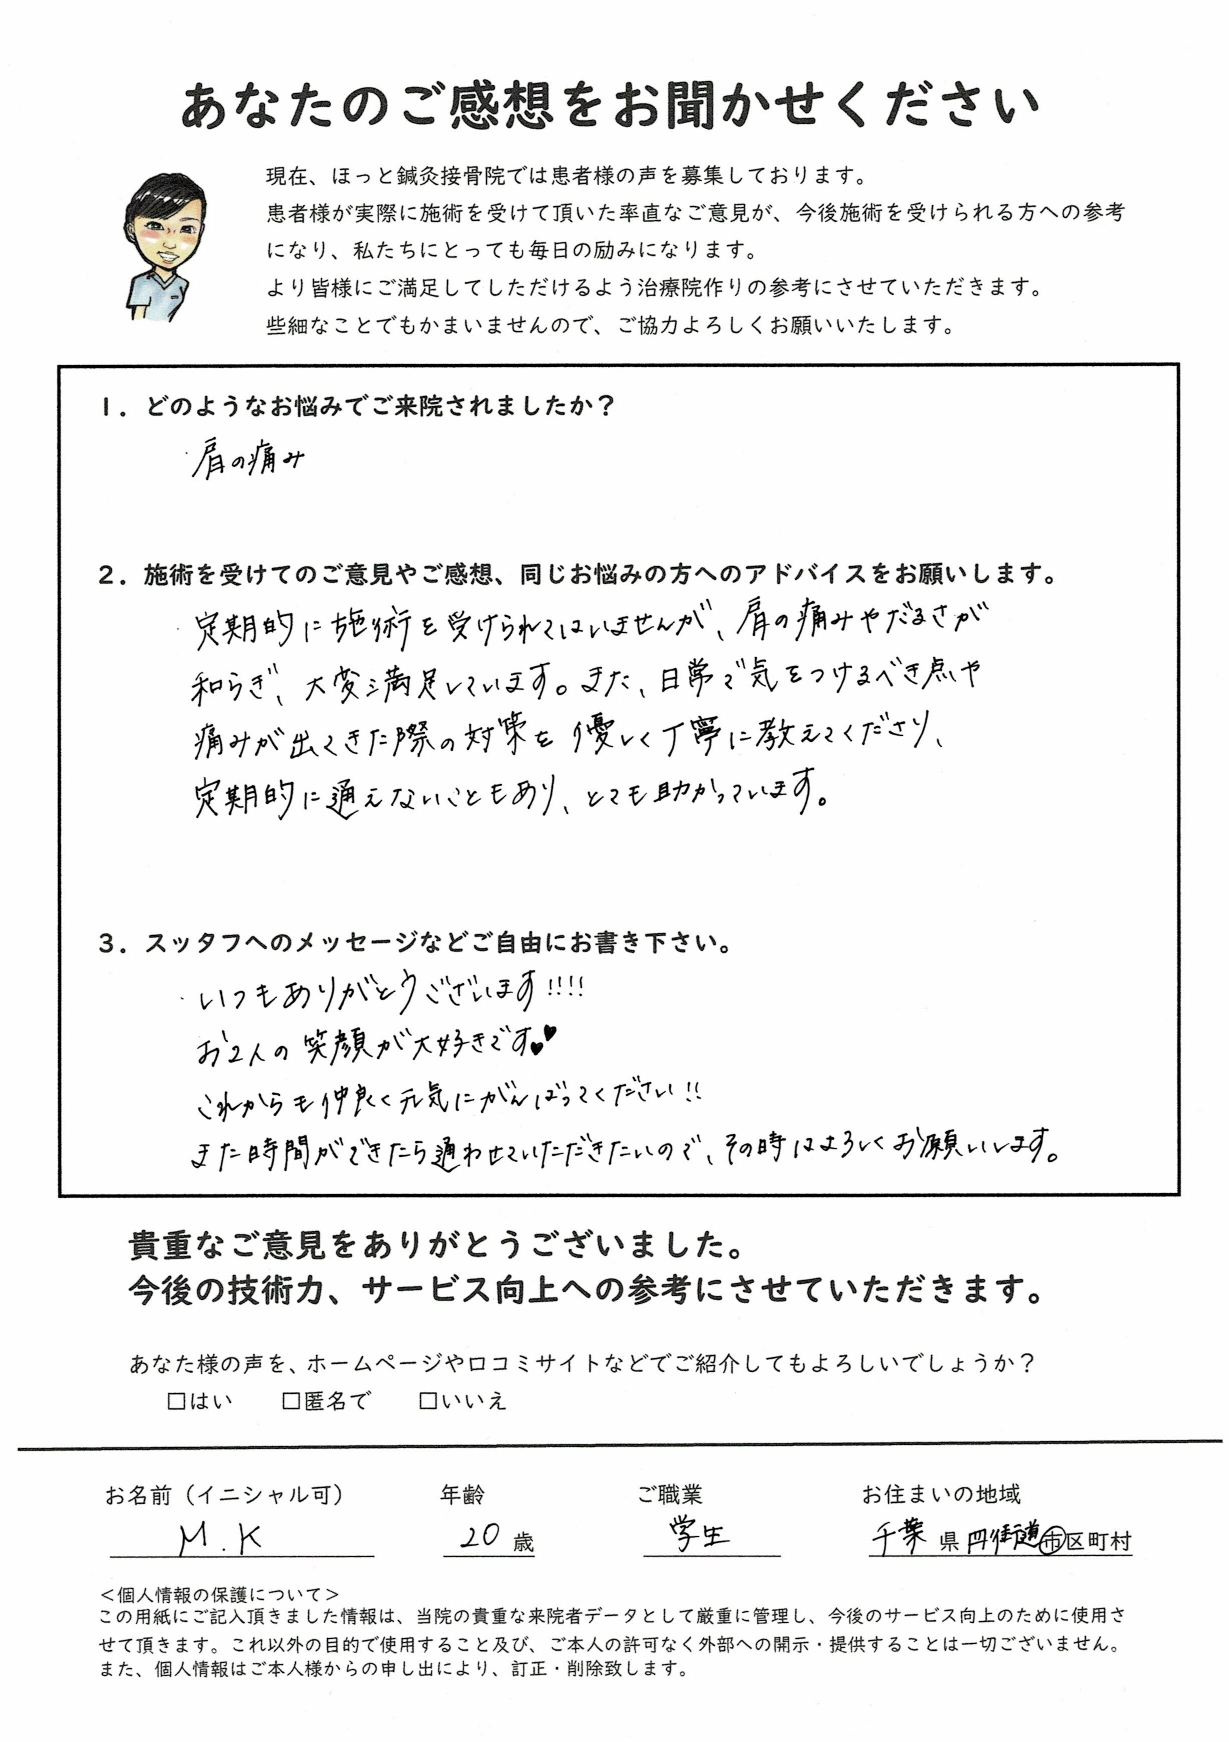 あなたのご感想をお聞かせください
現在、ほっと鍼灸接骨院では患者様の声を募集しております。
患者様が実際に施術を受けて頂いた率直なご意見が、今後施術を受けられる方への参考
になり、私たちにとっても毎日の励みになります。
より皆様にご満足してしただけるよう治療院作りの参考にさせていただきます。
些細なことでもかまいませんので、ご協力よろしくお願いいたします。
1．どのようなお悩みでご来院されましたか？
・肩の痛み
2．施術を受けてのご意見やご感想、同じお悩みの方へのアドバイスをお願いします。
・定期的に施術を受けられてはいませんが、肩の痛みやだるさが
和らぎ、大変満足しています。また、日常で気をつけるべき点や
痛みが出てきた際の対策を優しく丁寧に教えてくださり、
定期的に通えないこともあり、とても助かっています。
3．スッタフへのメッセージなどご自由にお書き下さい。
・いつもありがとうございます!!!!
お2人の笑顔が大好きです♥♥
これからも仲良く元気にがんばってください!!
また時間ができたら通わせていただきたいので、その時はよろしくお願いします。
貴重なご意見をありがとうございました。
今後の技術力、サービス向上への参考にさせていただきます。
あなた様の声を、ホームページや口コミサイトなどでご紹介してもよろしいでしょうか？
□はい □匿名で □いいえ
お名前（イニシャル可） 年齢 ご職業 お住まいの地域
M.K 20 歳 学生 千葉 県 四街道 市区町村
＜個人情報の保護について＞
この用紙にご記入頂きました情報は、当院の貴重な来院者データとして厳重に管理し、今後のサービス向上のために使用さ
せて頂きます。これ以外の目的で使用すること及び、ご本人の許可なく外部への開示・提供することは一切ございません。
また、個人情報はご本人様からの申し出により、訂正・削除致します。